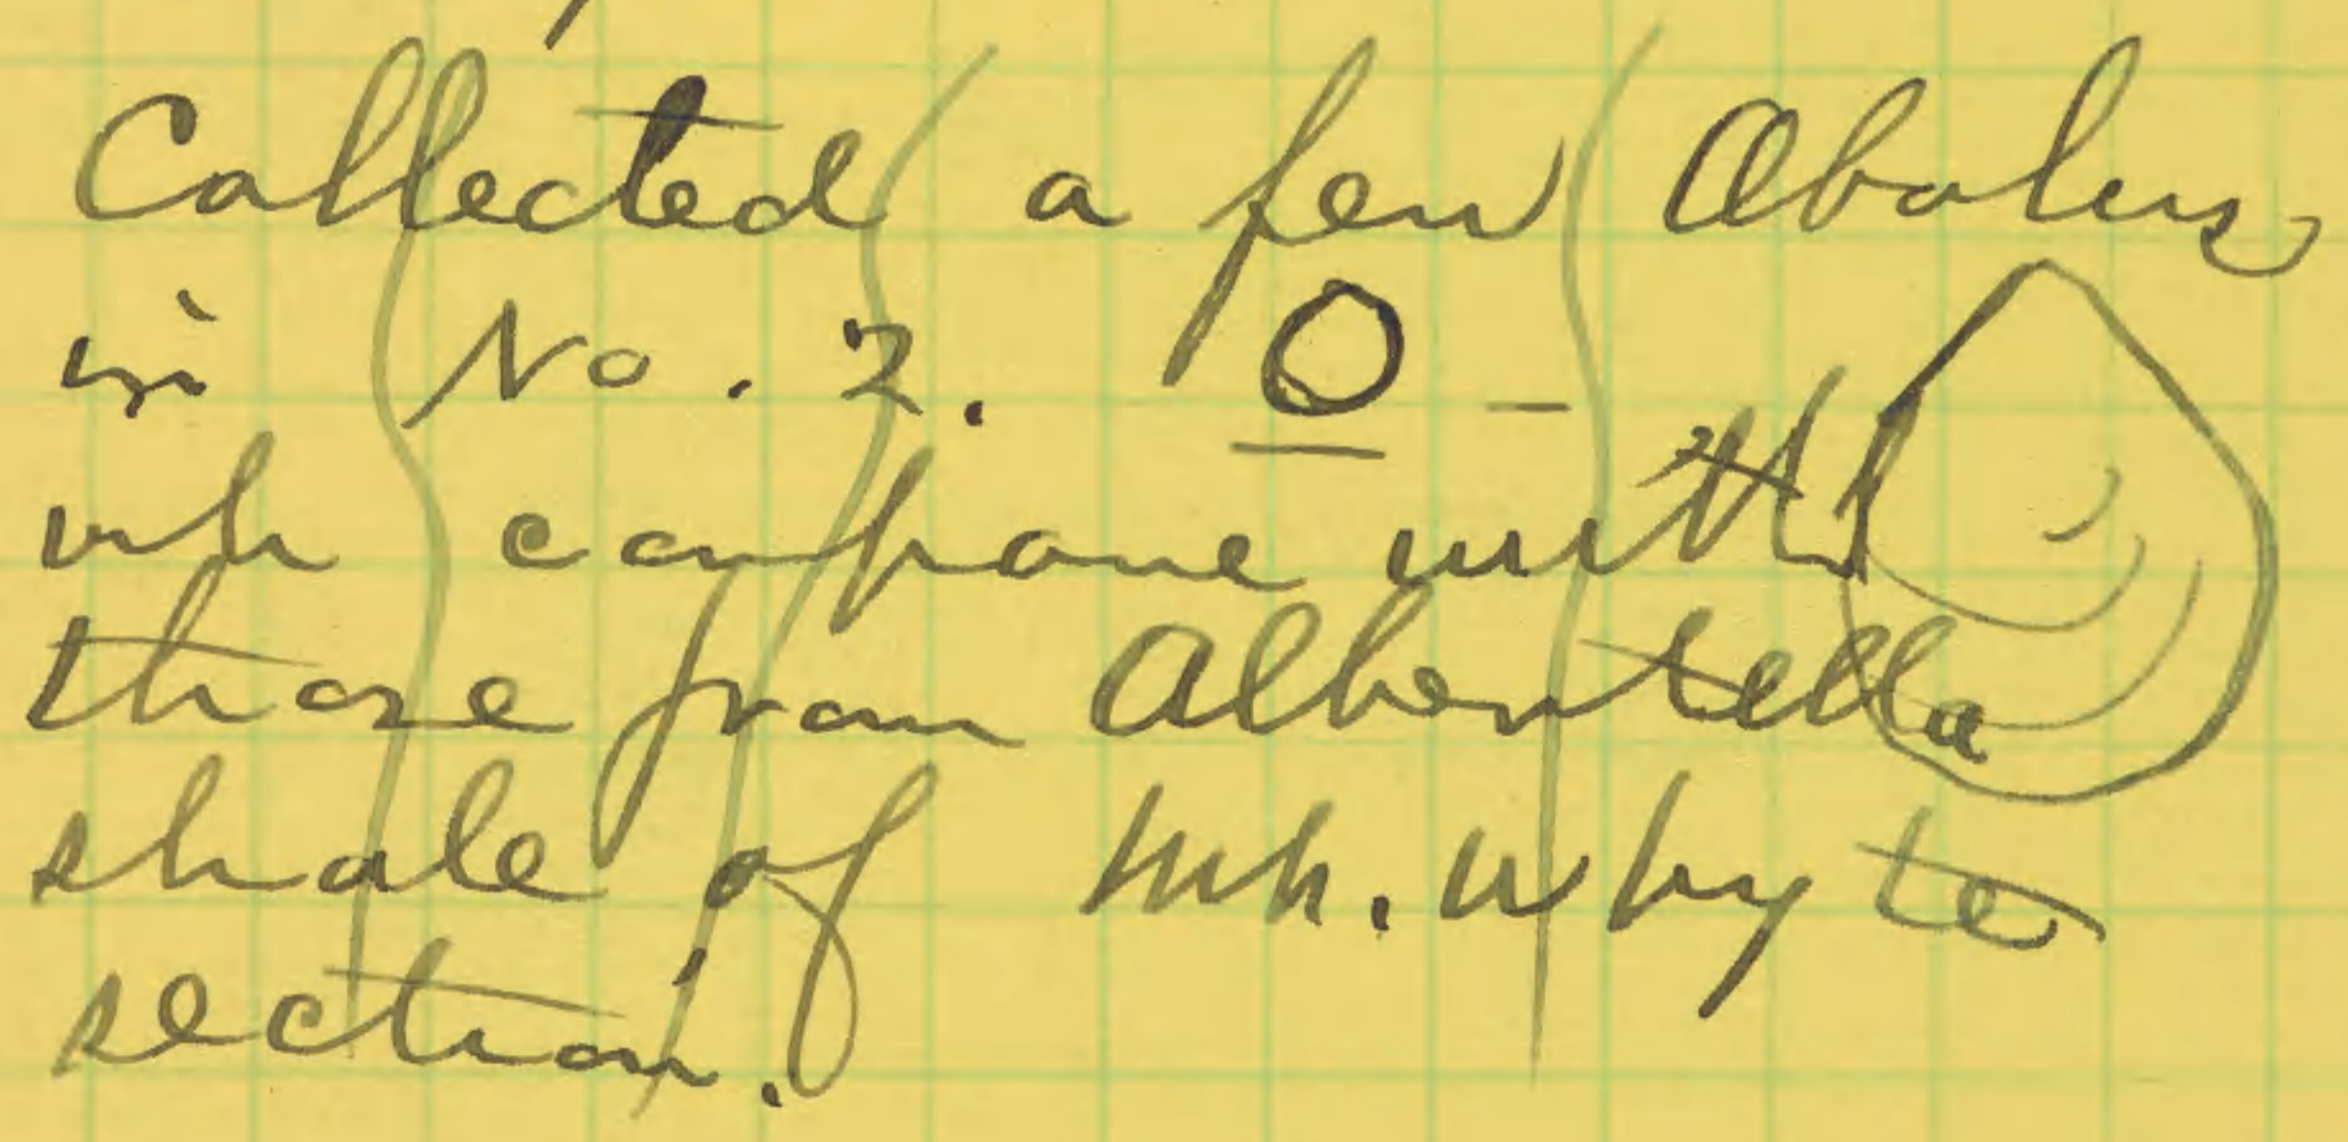 Collected a few Obolus
in No. 2. O -
wh compare with
those from Albertella
shale of Mt. Whyte
section.